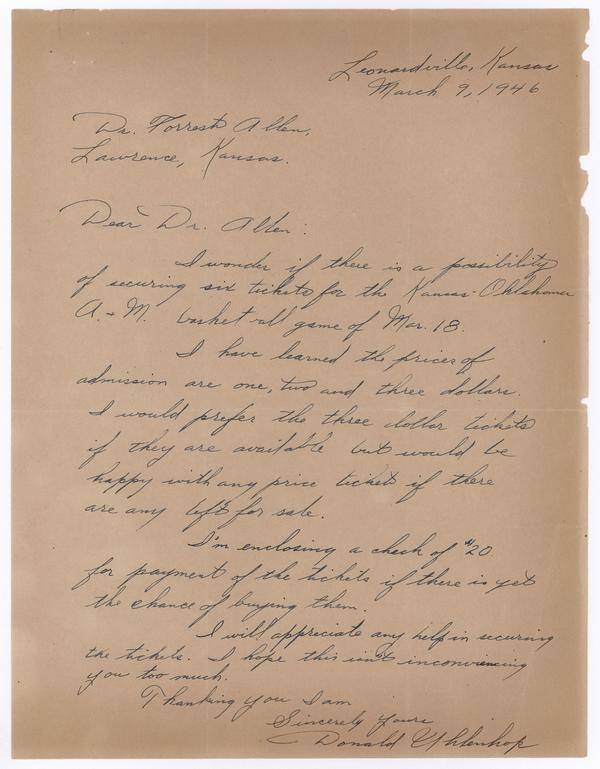 Leonardville, Kansas
March 9, 1946
Dr. Forrest Allen,
Lawrence, Kansas.
Dear Dr. Allen:
I wonder if there is a possibility
of securing six tickets for the Kansas-Ohklahoma
A. + M. basket-all game of Mar. 18.
I have learned the prices of
admission are one, two and three dollars.
I would prefer the three dollar tickets
if they are available but would be
happy with any price tickets if there
are any left for sale.
I'm enclosing a check of $20
for payment of the tickets if there is yet
the chance of buying them.
I will appreciate any help in securing
the tickets. I hope this isn't inconviencing
you too much.
Thanking you I am
Sincerely yours
Donald Uhlenhop